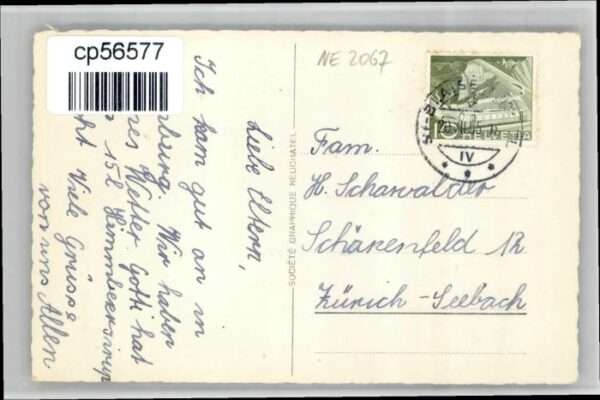 cp56577
NE 2067
Liebe Eltern,
Ich kam gut an in
burg. Wir haben
res Wetter Gotti hat
15 l Himmbeersirup
ht Viele Grüsse
von uns Allen
SOCIÉTÉ GRAPHIQUE NEUCHATEL
HELVETIA
IV
Fam.
H. Scharwalder
Schärenfeld 12
Zürich-Seebach